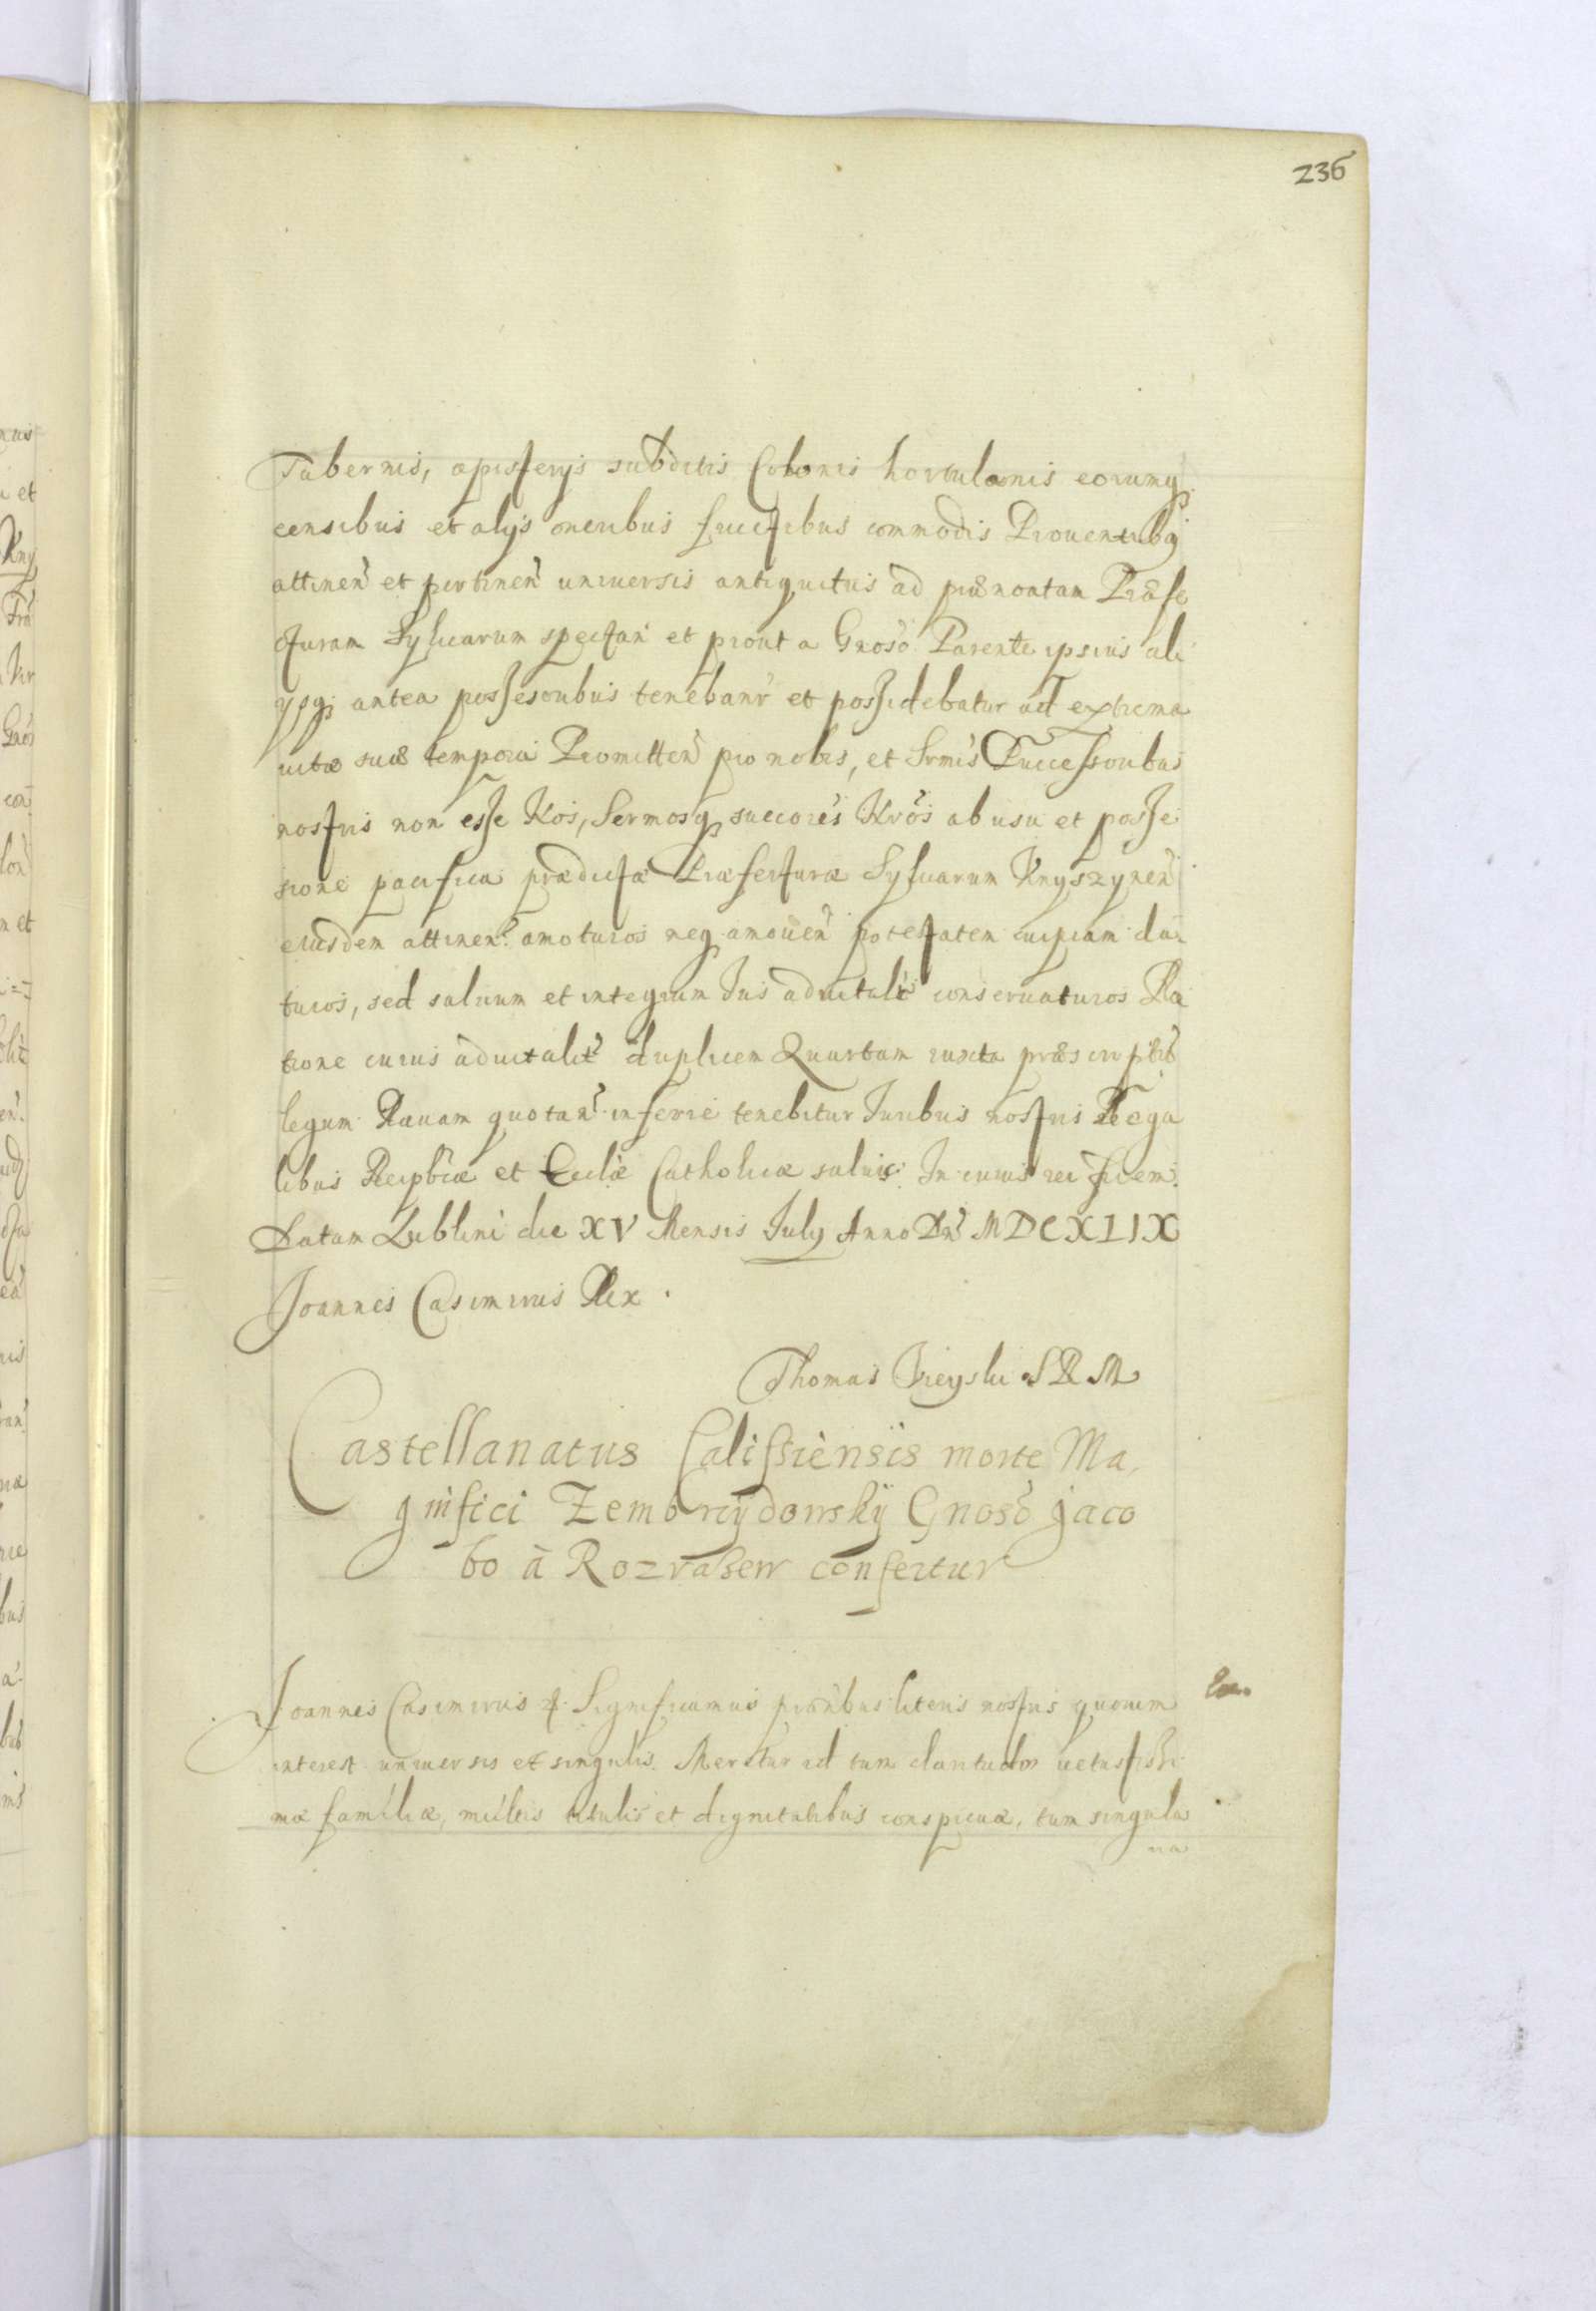 236
Tabernis, apisterijs subditis Colonis hortulanis eorumq3
censibus et alijs oneribus fructibus commodis Prouentibq3
attinen̄ et pertinen̄ uniuersis antiquitus ad prænoatam Præfe
cturam Syluarum spectan̄ et prout a Gnoso Parente ipsius ali
ysq3 antea possesoribus tenebanr et possidebatur ad extrema
uitæ suæ tempora Promitten̄ pro nobis, et Srmis Successoribus
nostris non esse Nos, Sermosq3 succores Nros ab usu et posse
sione pacifica prædicta Præfecturæ Syluarum Knyszynen̄
eiusdem attinen̄ amoturos neq3 amouen̄ potestatem cuipiam da
turos, sed saluum et integrum Ius aduitalit conseruaturos Ra
tione cuius aduitalit duplicem Quartam iuxta præscriptū
legum Rauam quotan̄ inferre tenebitur Iuribus nostris Rega
libus Reipbcæ et Eccliæ Catholicæ saluis. In cuius rei fidem.
Datum Lublini die XV Mensis July Anno Dn̄i MDCXLIX
Joannes Casimirus Rex.
Thomas Ujeyski S R M
Castellanatus Calissiensis morte Ma
gnifici Zembrzydowskij Gnoso Jaco
bo à Rozrażew confertur
Joannes Casimirus &. Significamus prænbus literis nostris quorum
interest uniuersis et singulis. Meretur id tum claritudo uetustissi
mæ familiæ, multis titulis et dignitatibus conspicuæ, tum singula
ria